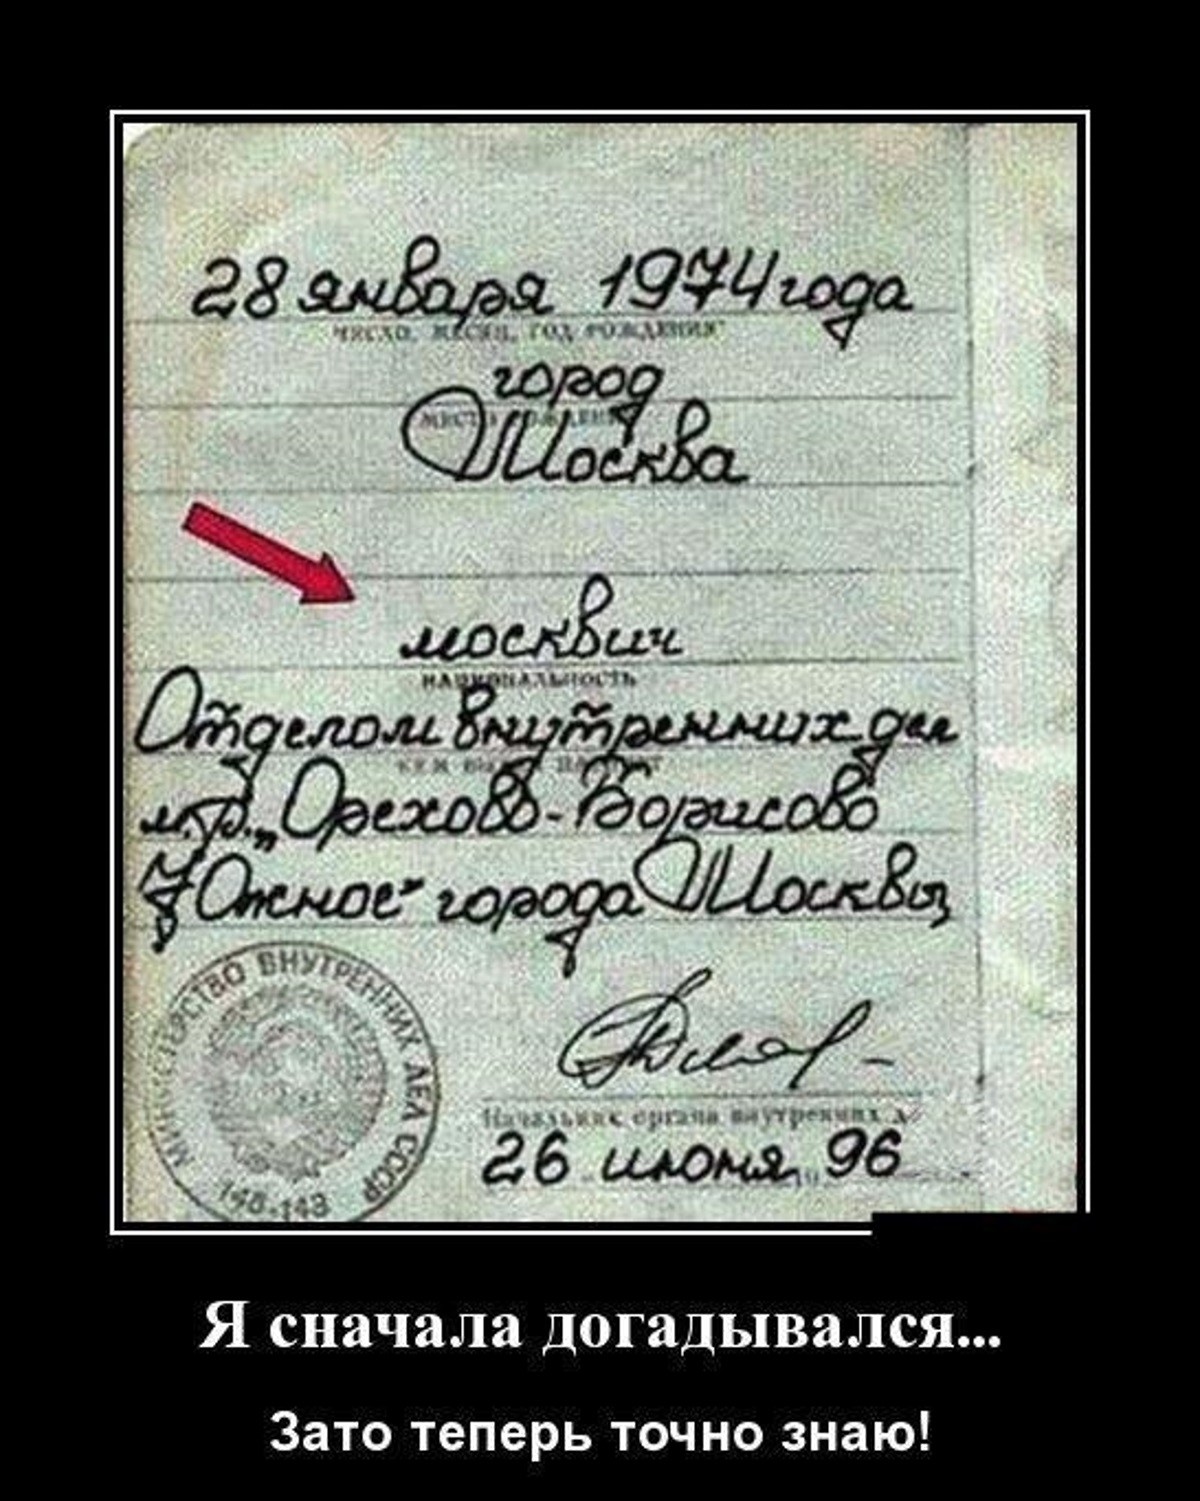 28 января 1974 года
ЧИСЛО, МЕСЯЦ, ГОД РОЖДЕНИЯ
город
МЕСТО РОЖДЕНИЯ
Москва
москвич
НАЦИОНАЛЬНОСТЬ
Отделом внутренних дел
КЕМ ВЫДАН ПАСПОРТ
м.р. „Орехово-Борисово
Южное" города Москвы
МИНИСТЕРСТВО ВНУТРЕННИХ ДЕЛ СССР
148-143
Начальник органа внутренних д
26 июня 96
Я сначала догадывался...
Зато теперь точно знаю!